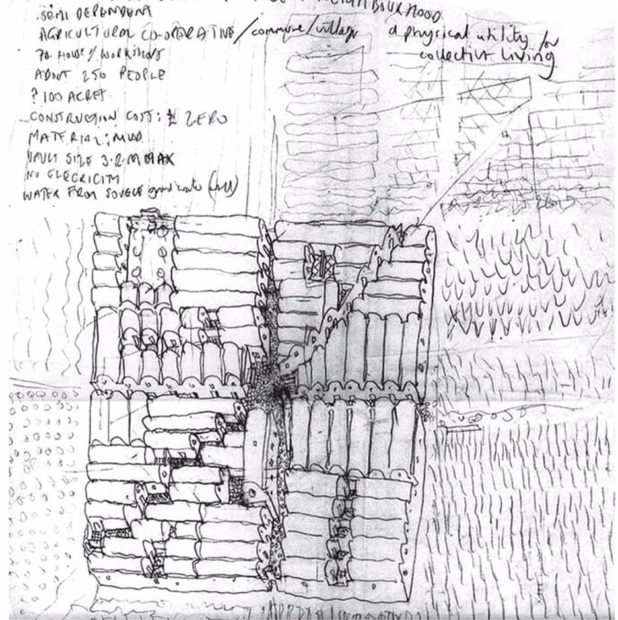 NEIGHBOURHOOD
SEMI DEPENDENT
AGRICULTURAL CO-OPERATIVE/commune/village
70 HOUSES/WORKSHOPS
ABOUT 250 PEOPLE
? 100 ACRES
CONSTRUCTION COST: ZERO
MATERIAL: MUD
VAULT SIZE 3.2 M MAX
NO ELECRICITY
WATER FROM SOURCE (well)
a physical utility for
collective living